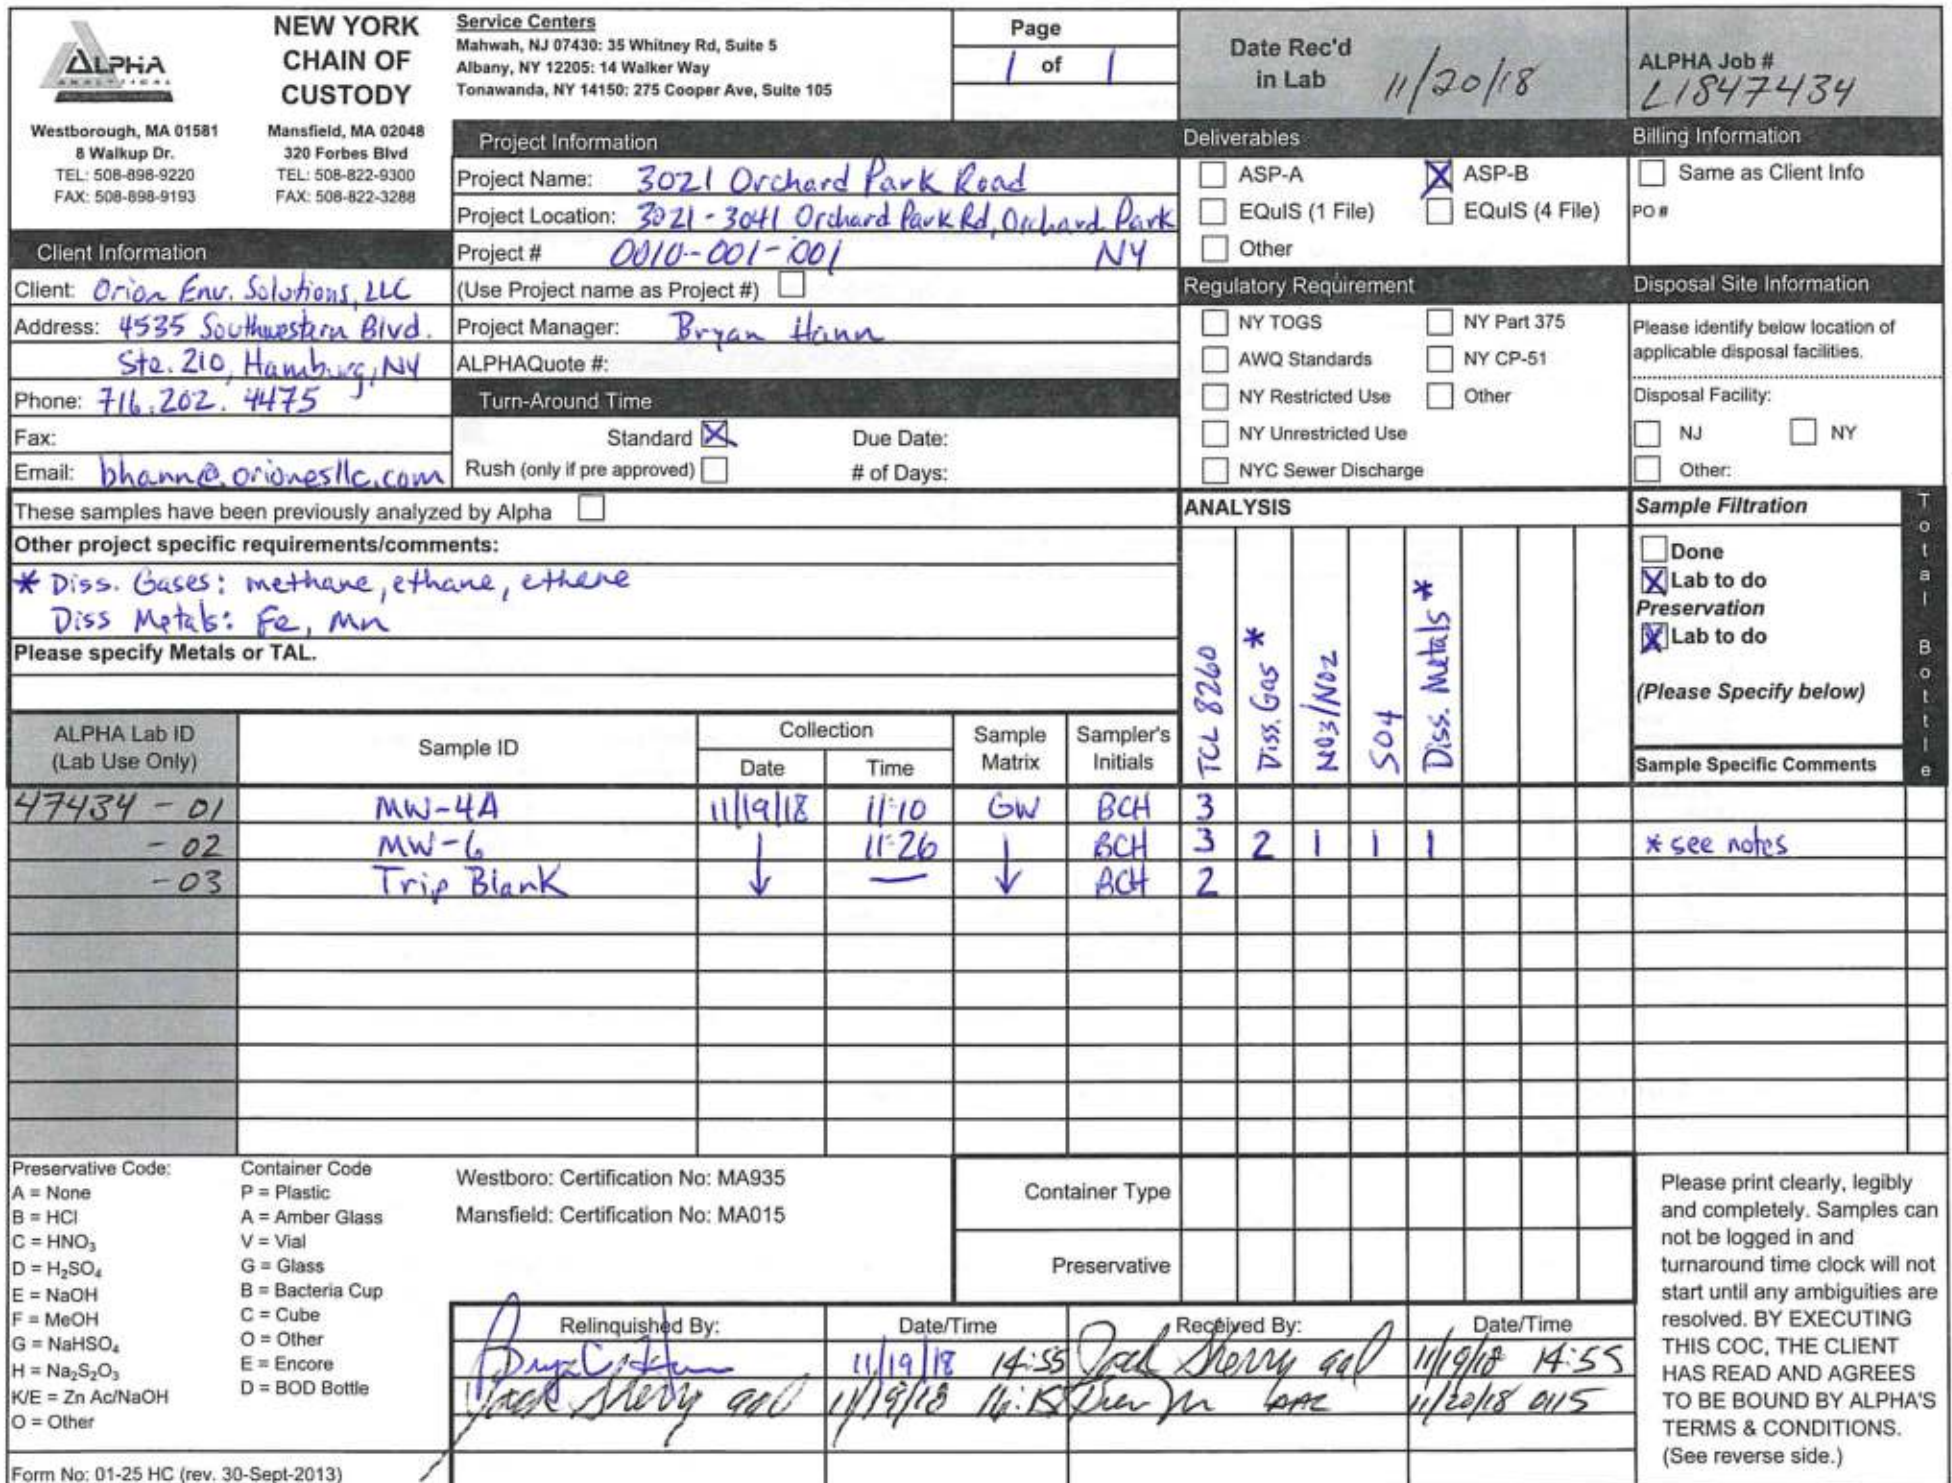 ALPHA
ANALYTICAL
NEW YORK
CHAIN OF
CUSTODY
Westborough, MA 01581
8 Walkup Dr.
TEL: 508-898-9220
FAX: 508-898-9193
Mansfield, MA 02048
320 Forbes Blvd
TEL: 508-822-9300
FAX: 508-822-3288
Service Centers
Mahwah, NJ 07430: 35 Whitney Rd, Suite 5
Albany, NY 12205: 14 Walker Way
Tonawanda, NY 14150: 275 Cooper Ave, Suite 105
Page
1 of 1
Date Rec'd
in Lab 11/20/18
ALPHA Job #
L1847434
Client Information
Client: Orion Env. Solutions, LLC
Address: 4535 Southwestern Blvd.
Ste. 210, Hamburg, NY
Phone: 716.202.4475
Fax:
Email: bhann@orionesllc.com
Project Information
Project Name: 3021 Orchard Park Road
Project Location: 3021-3041 Orchard Park Rd, Orchard Park
Project # 0010-001-001 NY
(Use Project name as Project #)
Project Manager: Bryan Hann
ALPHAQuote #:
Turn-Around Time
Standard X Due Date:
Rush (only if pre approved) # of Days:
Deliverables
ASP-A X ASP-B
EQuIS (1 File) EQuIS (4 File)
Other
Regulatory Requirement
NY TOGS NY Part 375
AWQ Standards NY CP-51
NY Restricted Use Other
NY Unrestricted Use
NYC Sewer Discharge
Billing Information
Same as Client Info
PO #
Disposal Site Information
Please identify below location of
applicable disposal facilities.
Disposal Facility:
NJ NY
Other:
These samples have been previously analyzed by Alpha
Other project specific requirements/comments:
* Diss. Gases: methane, ethane, ethene
Diss Metals: Fe, Mn
Please specify Metals or TAL.
ANALYSIS
TCL 8260
Diss. Gas *
NO3/NO2
SO4
Diss. Metals *
Sample Filtration
Done
X Lab to do
Preservation
X Lab to do
(Please Specify below)
Sample Specific Comments
Total Bottle
ALPHA Lab ID
(Lab Use Only)
Sample ID
Collection
Date Time
Sample
Matrix
Sampler's
Initials
47434 - 01 MW-4A 11/19/18 11:10 GW BCH 3
- 02 MW-6 ↓ 11:26 ↓ BCH 3 2 1 1 1 * see notes
- 03 Trip Blank ↓ — ↓ BCH 2
Preservative Code:
A = None
B = HCl
C = HNO₃
D = H₂SO₄
E = NaOH
F = MeOH
G = NaHSO₄
H = Na₂S₂O₃
K/E = Zn Ac/NaOH
O = Other
Container Code
P = Plastic
A = Amber Glass
V = Vial
G = Glass
B = Bacteria Cup
C = Cube
O = Other
E = Encore
D = BOD Bottle
Westboro: Certification No: MA935
Mansfield: Certification No: MA015
Container Type
Preservative
Relinquished By: Date/Time Received By: Date/Time
11/19/18 14:55 Jack Sherry aal 11/19/18 14:55
Jack Sherry aal 11/19/18 11/20/18 0115
Please print clearly, legibly
and completely. Samples can
not be logged in and
turnaround time clock will not
start until any ambiguities are
resolved. BY EXECUTING
THIS COC, THE CLIENT
HAS READ AND AGREES
TO BE BOUND BY ALPHA'S
TERMS & CONDITIONS.
(See reverse side.)
Form No: 01-25 HC (rev. 30-Sept-2013)